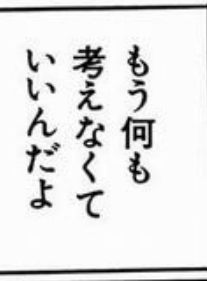 もう何も
考えなくて
いいんだよ